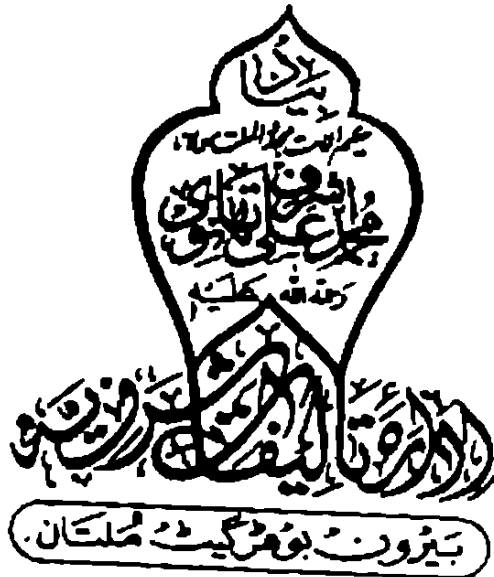 بیاد
حکیم الامت مجدد الملت مولانا
محمد اشرف علی تھانوی
رحمۃ اللہ علیہ
ادارہ تالیفات اشرفیہ
بیرون بوھڑ گیٹ ملتان